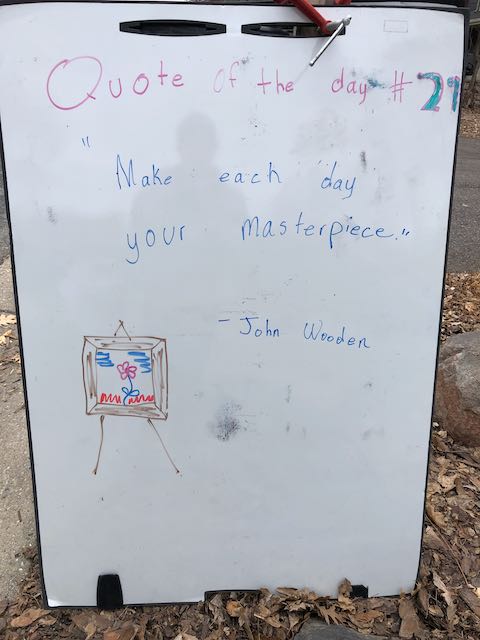 Quote of the day #29
"Make each day
your masterpiece."
- John Wooden